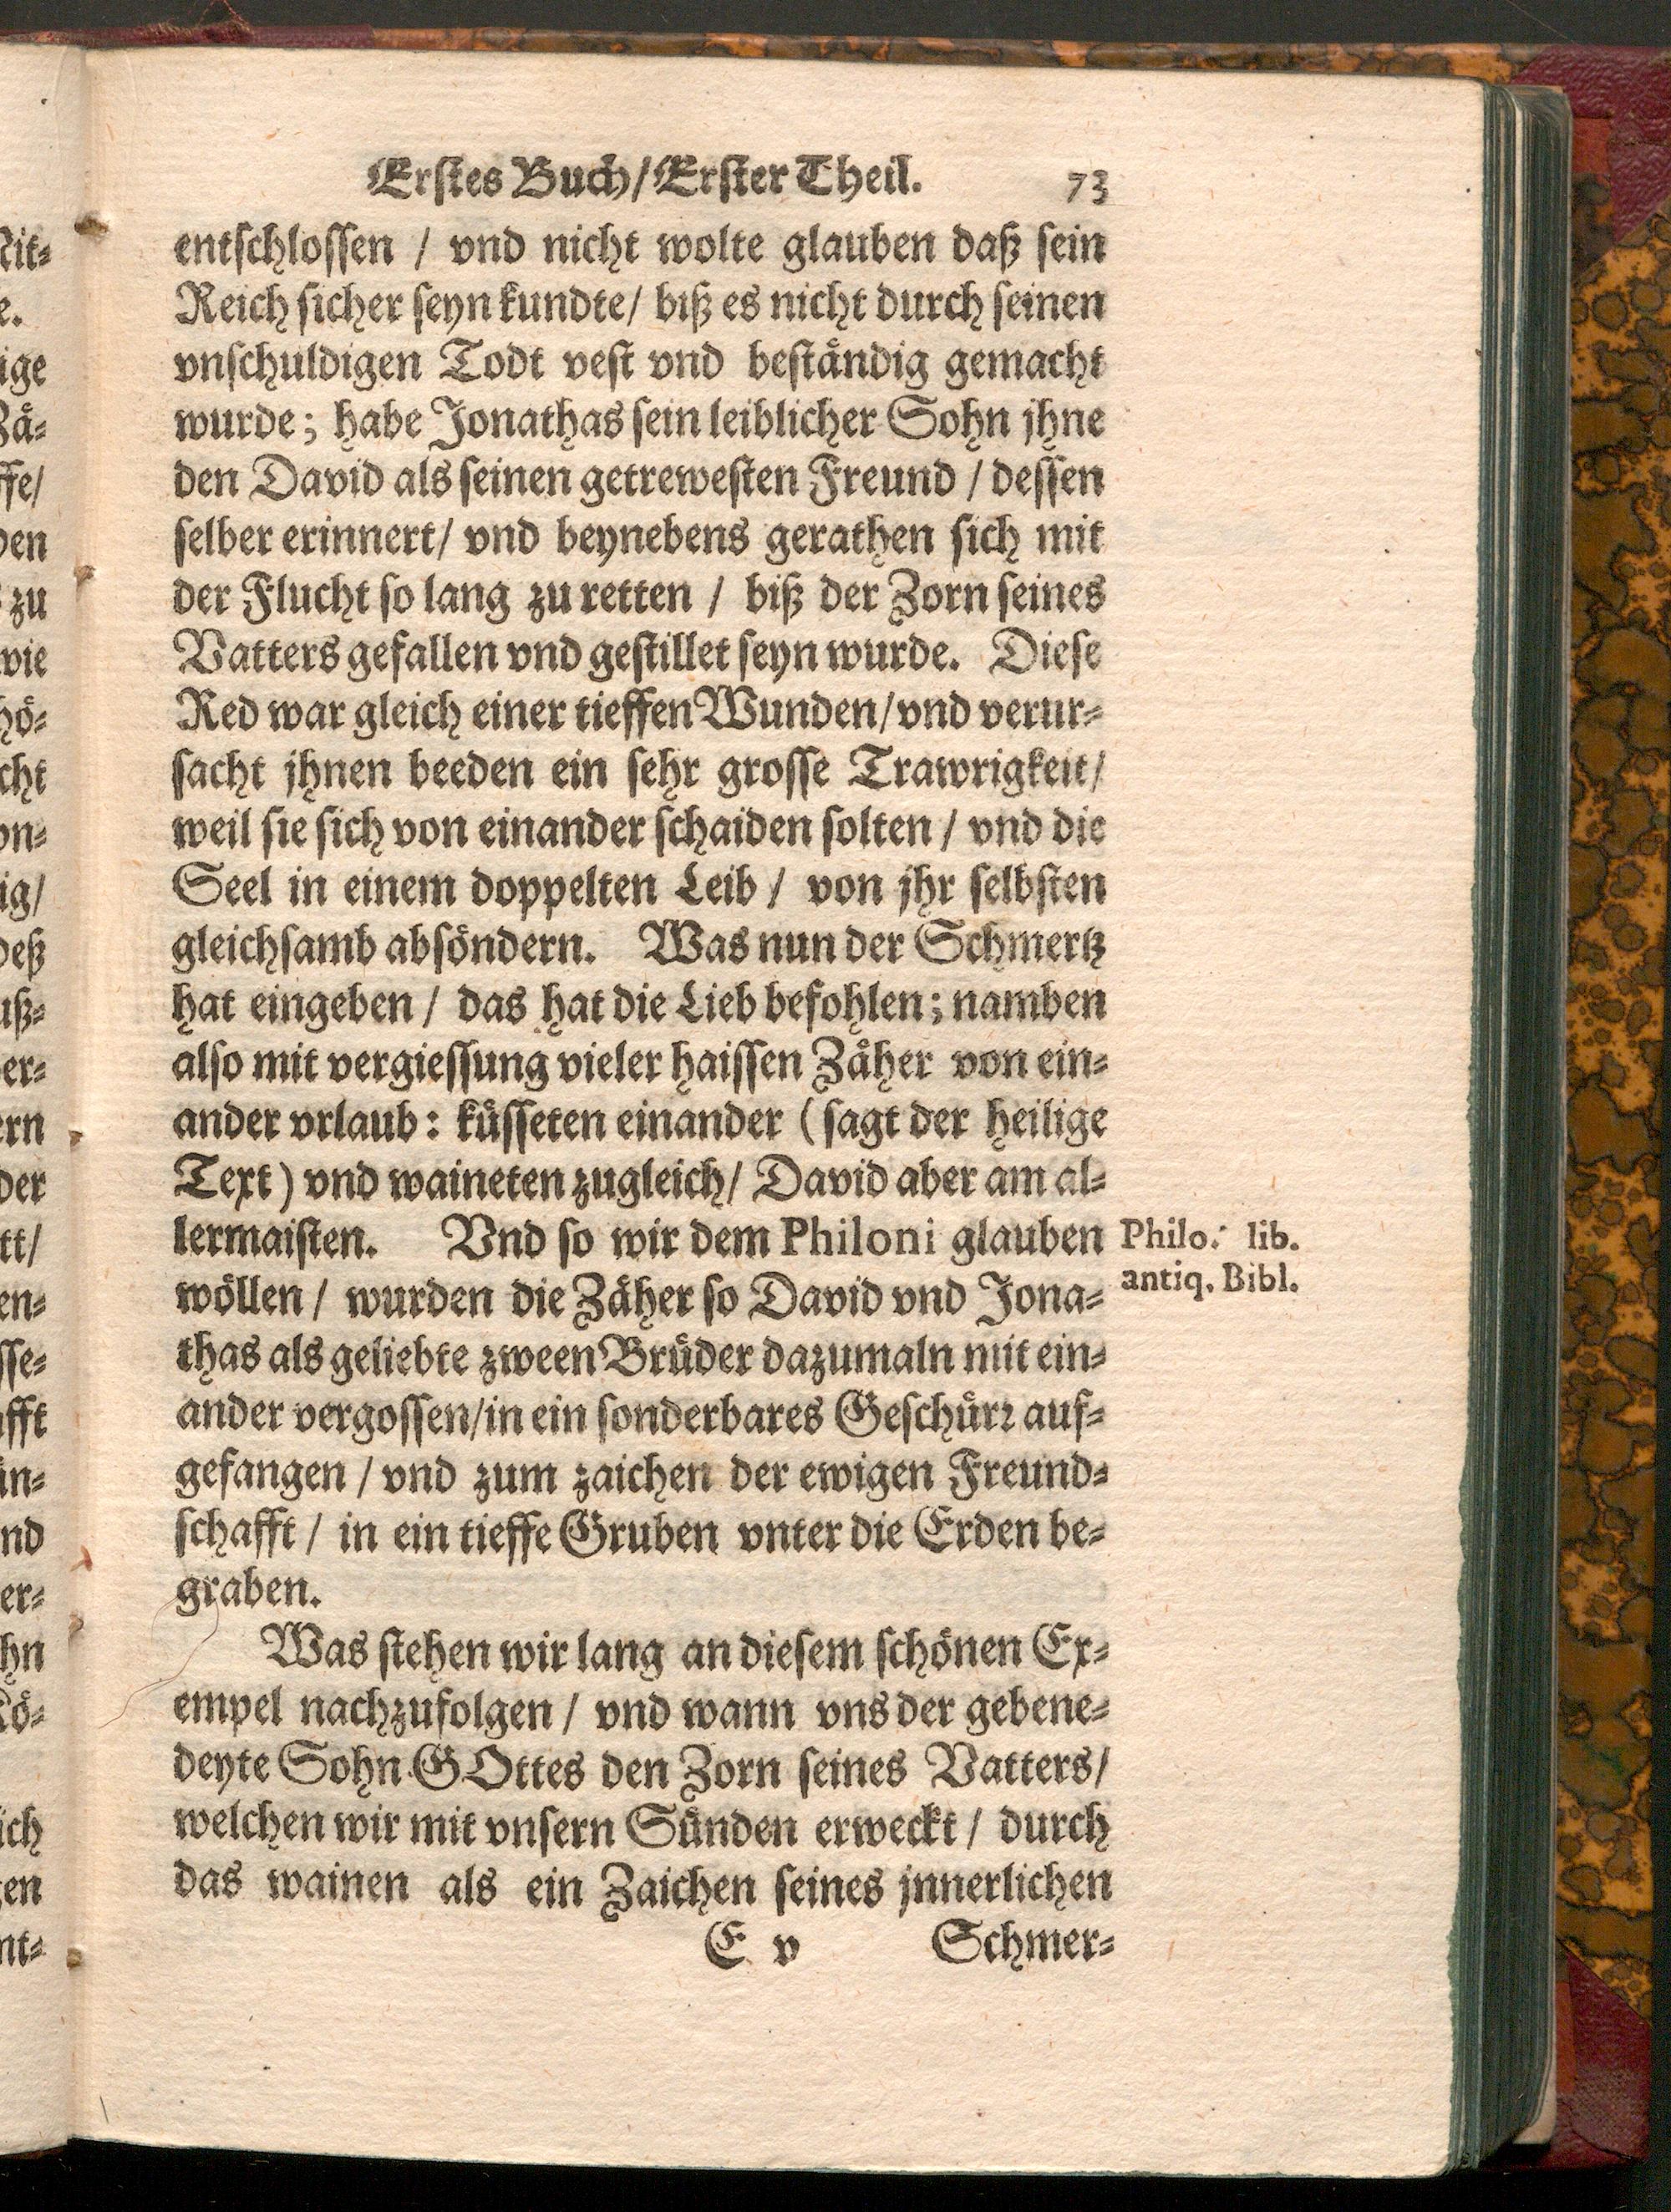 Erstes Buch/ Erster Theil. 73
entschlossen / vnd nicht wolte glauben daß sein
Reich sicher seyn kundte/ biß es nicht durch seinen
vnschuldigen Todt vest vnd beständig gemacht
wurde; habe Jonathas sein leiblicher Sohn jhne
den David als seinen getrewesten Freund / dessen
selber erinnert/ vnd beynebens gerathen sich mit
der Flucht so lang zu retten / biß der Zorn seines
Vatters gefallen vnd gestillet seyn wurde. Diese
Red war gleich einer tieffen Wunden/ vnd verur-
sacht jhnen beeden ein sehr grosse Trawrigkeit/
weil sie sich von einander schaiden solten / vnd die
Seel in einem doppelten Leib / von jhr selbsten
gleichsamb absöndern. Was nun der Schmertz
hat eingeben / das hat die Lieb befohlen; namben
also mit vergiessung vieler haissen Zäher von ein-
ander vrlaub: küsseten einander (sagt der heilige
Text) vnd waineten zugleich/ David aber am al-
lermaisten. Vnd so wir dem Philoni glauben
Philo. lib.
antiq. Bibl.
wöllen / wurden die Zäher so David vnd Jona-
thas als geliebte zween Brüder dazumaln mit ein-
ander vergossen/ in ein sonderbares Geschürr auf-
gefangen / vnd zum zaichen der ewigen Freund-
schafft / in ein tieffe Gruben vnter die Erden be-
graben.
Was stehen wir lang an diesem schönen Ex-
empel nachzufolgen / vnd wann vns der gebene-
deyte Sohn GOttes den Zorn seines Vatters/
welchen wir mit vnsern Sünden erweckt / durch
das wainen als ein Zaichen seines jnnerlichen
E v Schmer-